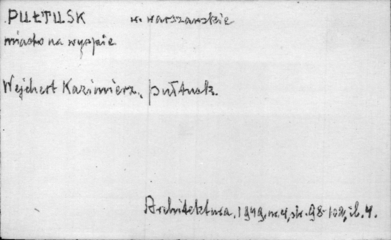 PUŁTUSK w. warszawskie
miasto na wyspie
Wejchert Kazimierz, Pułtusk.
Architektura, 1949, nr. 4, str. 98-102, il. 4.